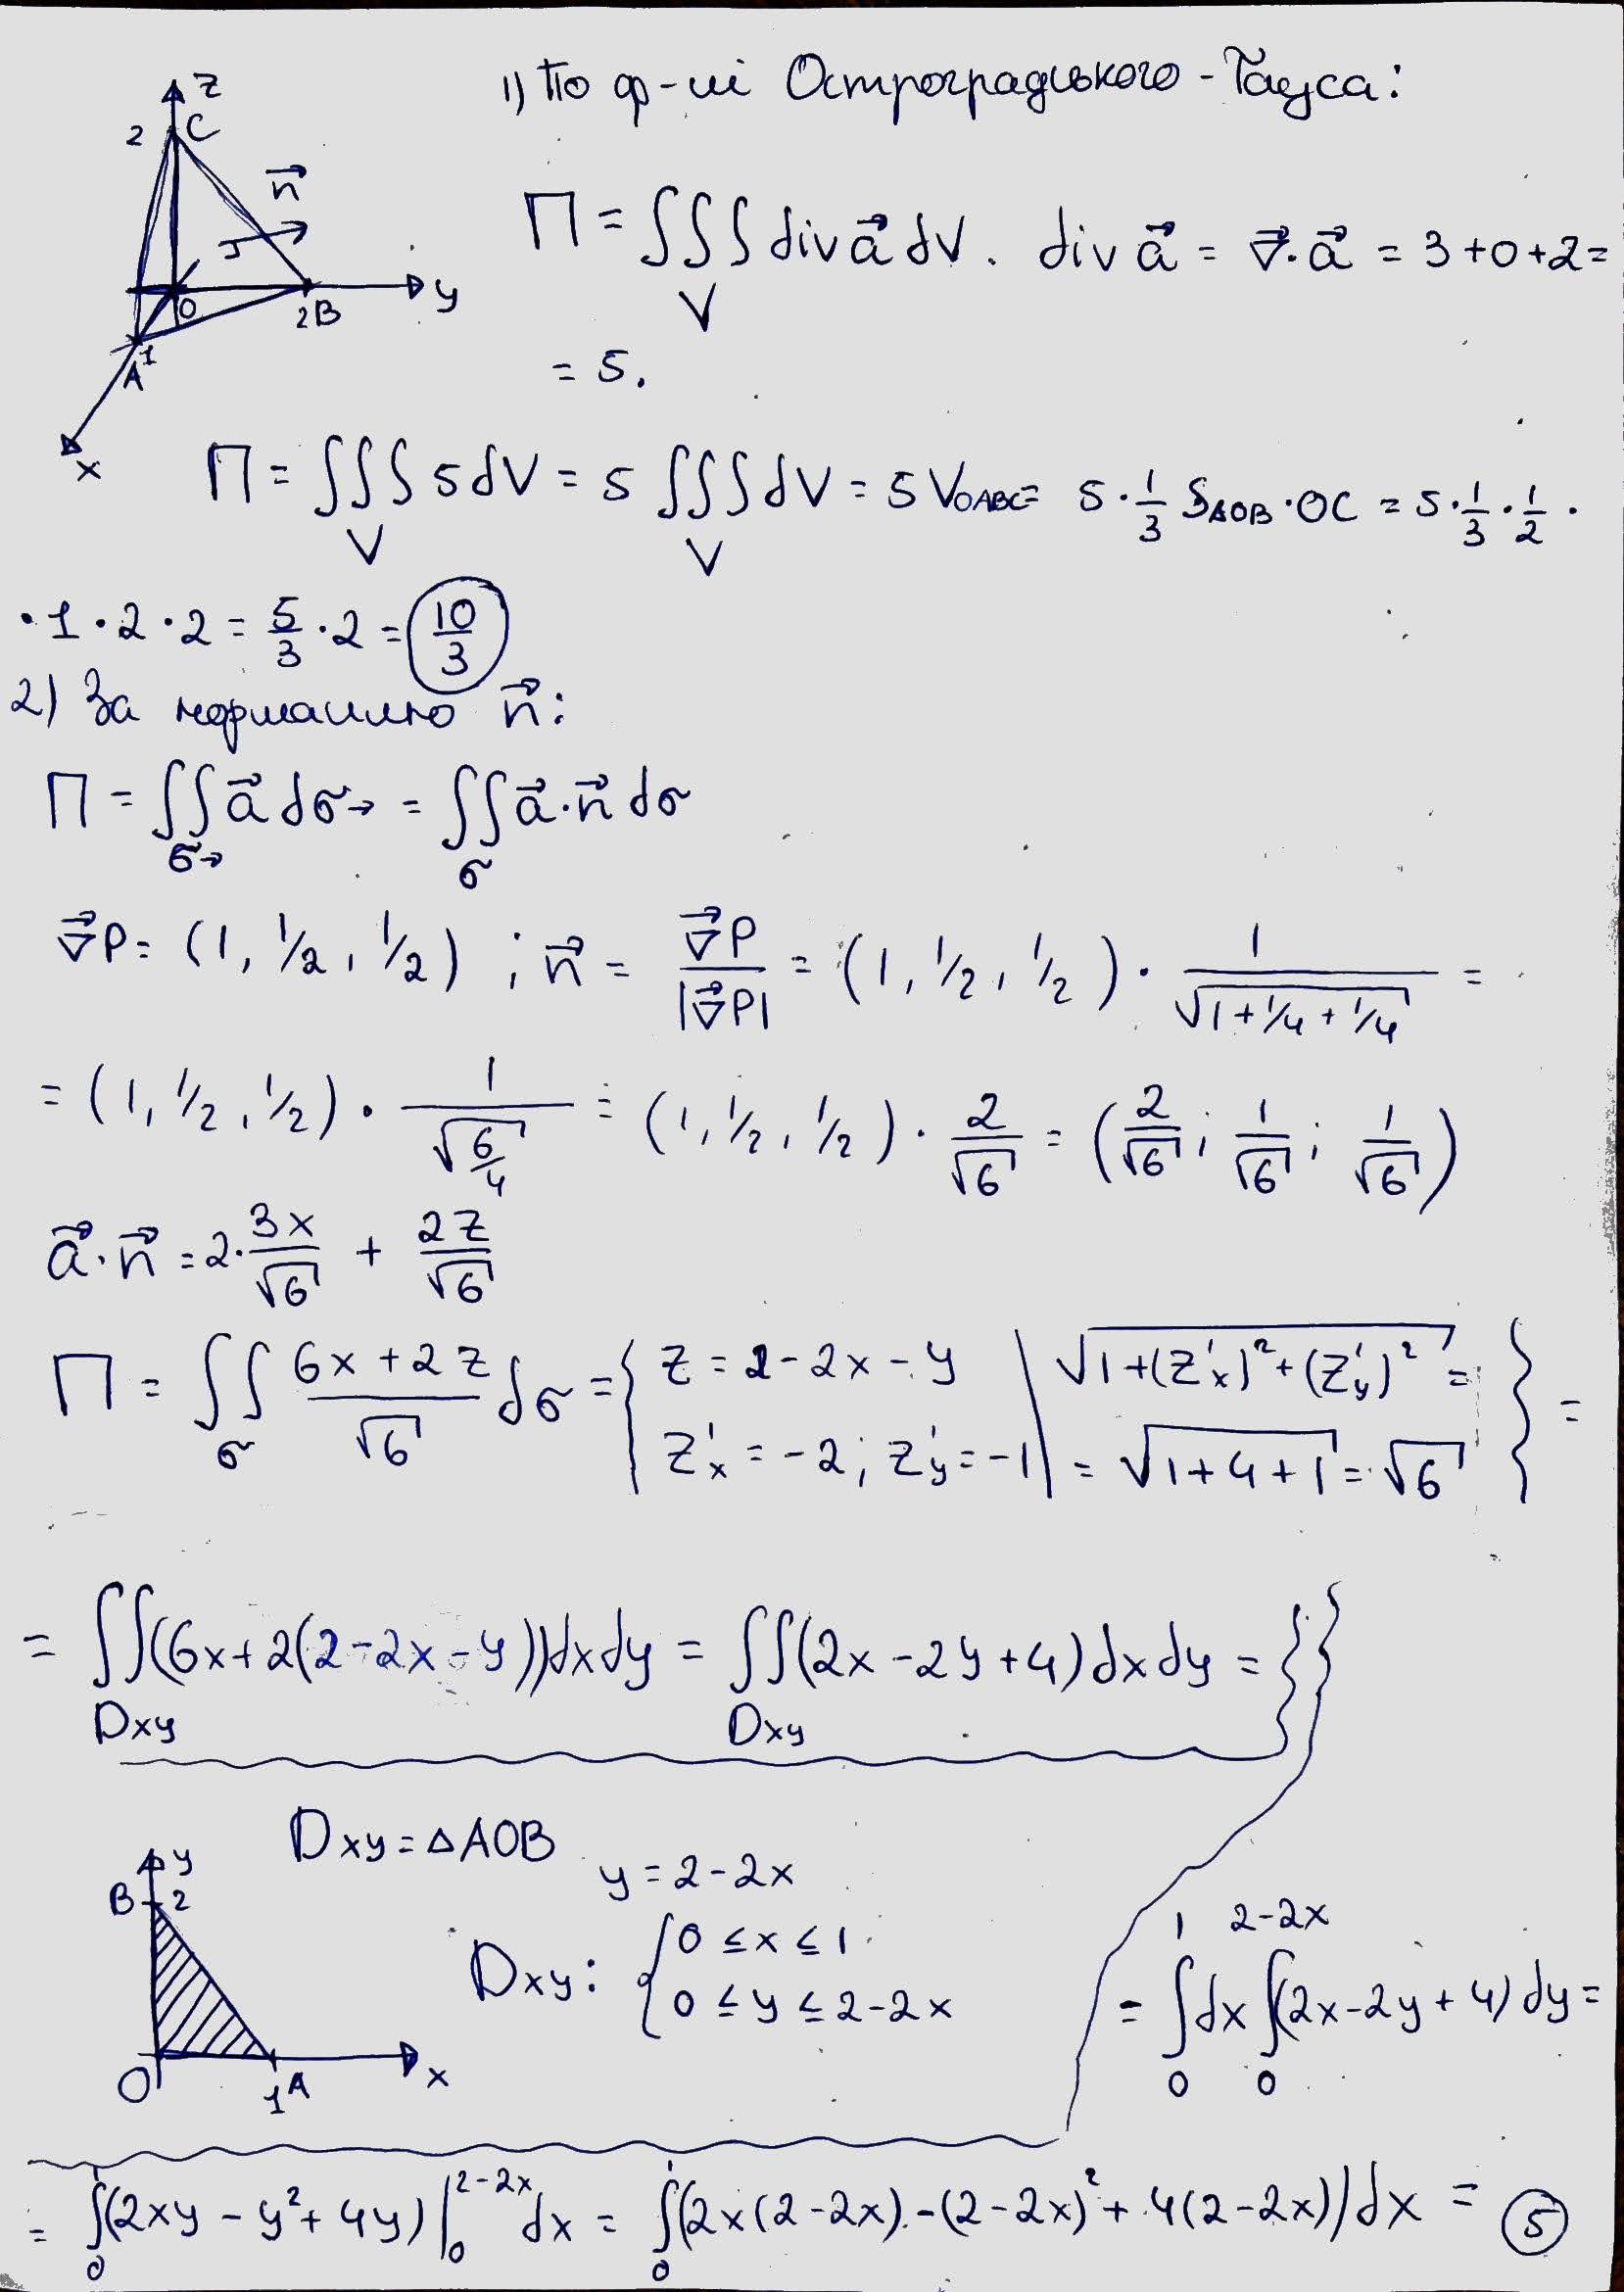 1) По ф-лі Остроградського-Гауса:
z
2 C
n⃗
O
2B
y
1
A
x
П = ∭_V div a⃗ dV. div a⃗ = ∇⃗·a⃗ = 3+0+2=
= 5.
П = ∭_V 5dV = 5 ∭_V dV = 5 V_OABC = 5·1/3 S_AOB·OC = 5·1/3·1/2·
·1·2·2 = 5/3·2 = 10/3
2) За нормаллю n⃗:
П = ∬_σ→ a⃗ dσ→ = ∬_σ a⃗·n⃗ dσ
∇⃗P = (1, 1/2, 1/2) ; n⃗ = ∇⃗P/|∇⃗P| = (1, 1/2, 1/2)· 1/√(1+1/4+1/4) =
= (1, 1/2, 1/2)· 1/√(6/4) = (1, 1/2, 1/2)· 2/√6 = (2/√6; 1/√6; 1/√6)
a⃗·n⃗ = 2·3x/√6 + 2z/√6
П = ∬_σ (6x+2z)/√6 dσ = { z = 2-2x-y | √(1+(z'x)²+(z'y)²) = } =
z'x = -2; z'y = -1 | = √(1+4+1) = √6
= ∬_Dxy (6x+2(2-2x-y))dxdy = ∬_Dxy (2x-2y+4)dxdy = {
Dxy = △AOB
y = 2-2x
y
B 2
O
1 A
x
Dxy: { 0 ≤ x ≤ 1
0 ≤ y ≤ 2-2x
= ∫₀¹ dx ∫₀^(2-2x) (2x-2y+4)dy =
= ∫₀¹ (2xy - y² + 4y)|₀^(2-2x) dx = ∫₀¹ (2x(2-2x) - (2-2x)² + 4(2-2x))dx = 5